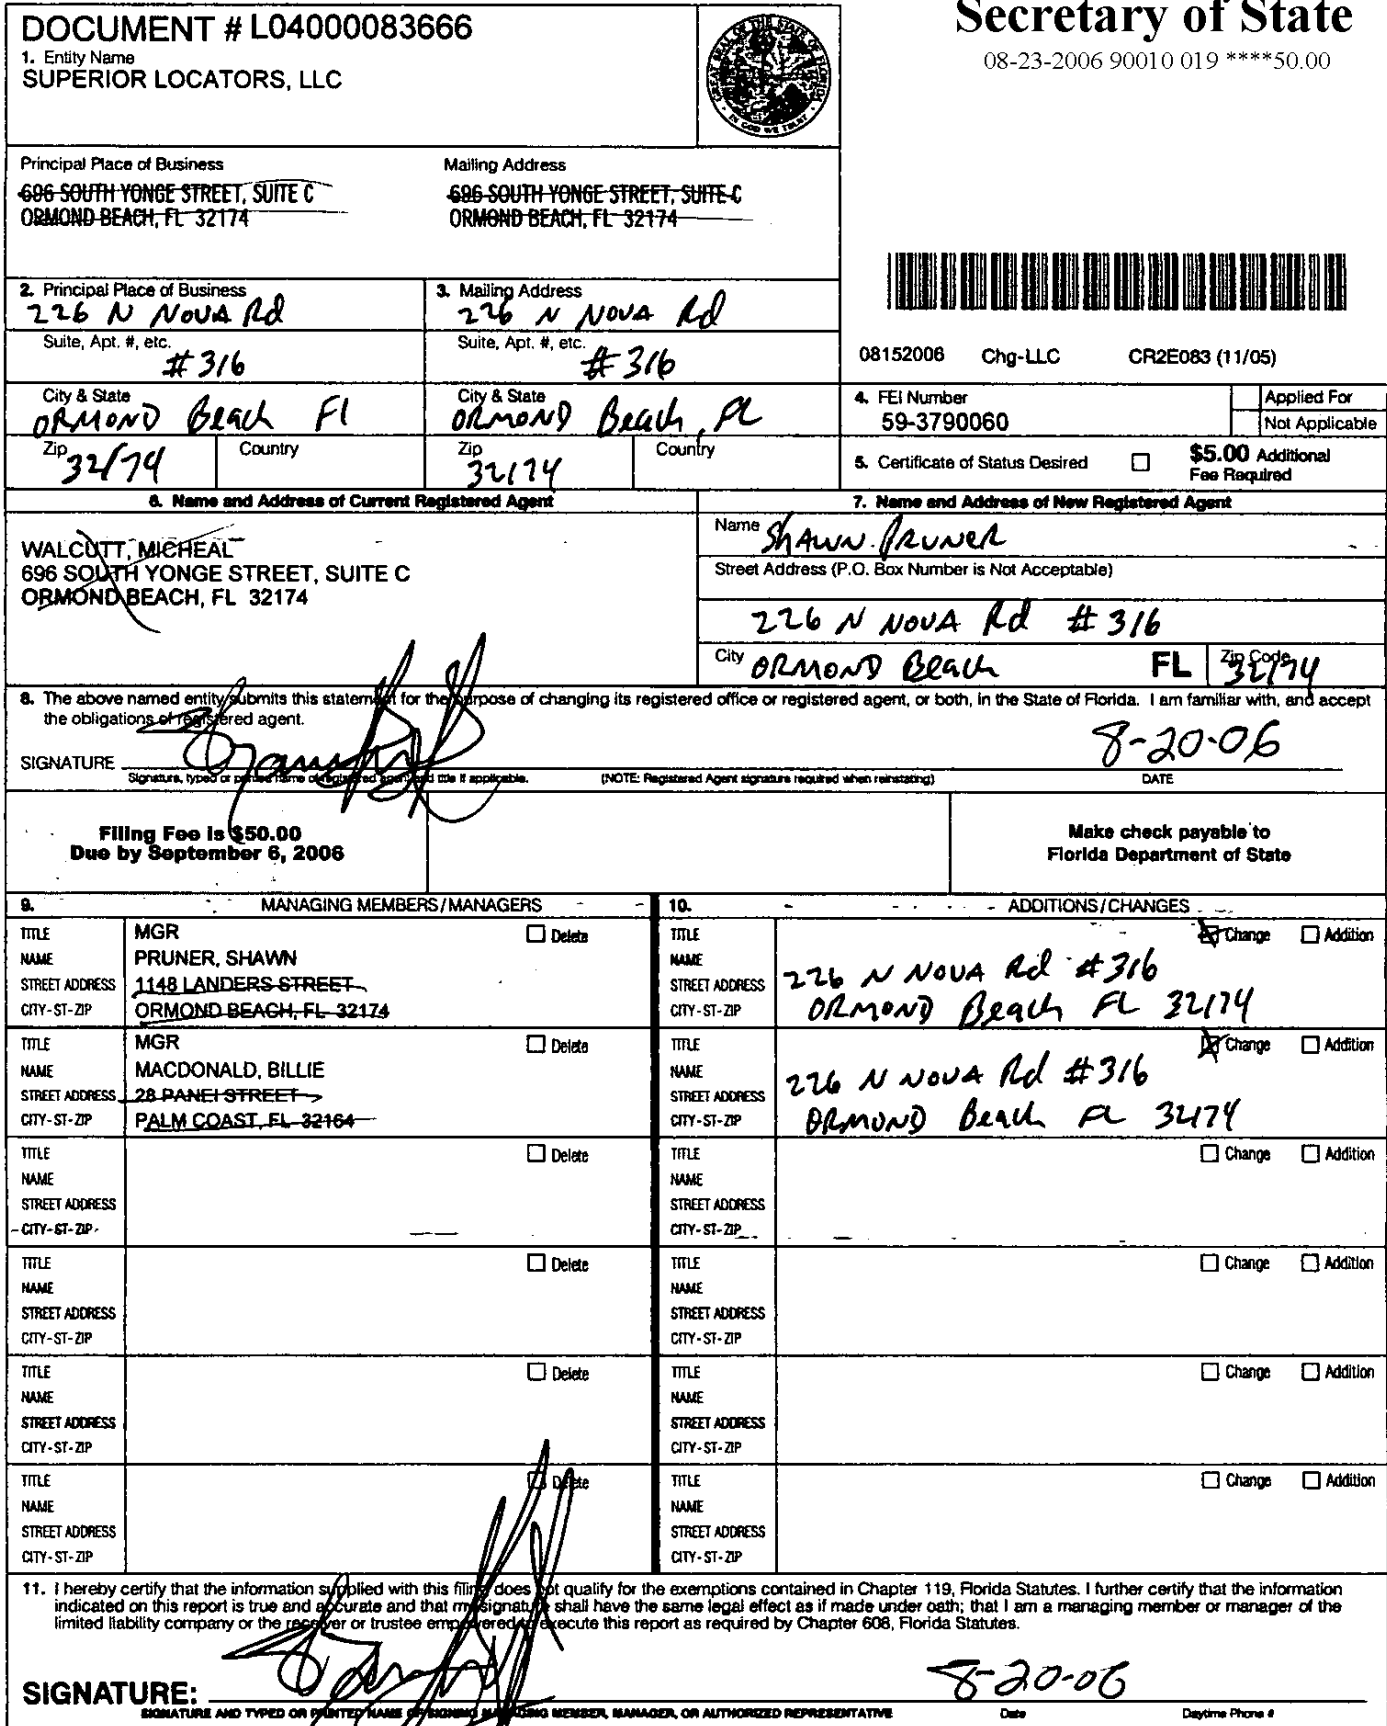 DOCUMENT # L04000083666
1. Entity Name
SUPERIOR LOCATORS, LLC
GREAT SEAL OF THE STATE OF FLORIDA
IN GOD WE TRUST
Secretary of State
08-23-2006 90010 019 ****50.00
Principal Place of Business
696 SOUTH YONGE STREET, SUITE C
ORMOND BEACH, FL 32174
Mailing Address
696 SOUTH YONGE STREET, SUITE C
ORMOND BEACH, FL 32174
2. Principal Place of Business
226 N NOVA Rd
Suite, Apt. #, etc.
#316
City & State
ORMOND Beach Fl
Zip 32174
Country
3. Mailing Address
226 N NOVA Rd
Suite, Apt. #, etc.
#316
City & State
ORMOND Beach, FL
Zip 32174
Country
08152006 Chg-LLC CR2E083 (11/05)
4. FEI Number
59-3790060
Applied For
Not Applicable
5. Certificate of Status Desired
$5.00 Additional
Fee Required
6. Name and Address of Current Registered Agent
WALCUTT, MICHEAL
696 SOUTH YONGE STREET, SUITE C
ORMOND BEACH, FL 32174
7. Name and Address of New Registered Agent
Name SHAWN PRUNER
Street Address (P.O. Box Number is Not Acceptable)
226 N NOVA Rd #316
City ORMOND Beach FL Zip Code 32174
8. The above named entity submits this statement for the purpose of changing its registered office or registered agent, or both, in the State of Florida. I am familiar with, and accept
the obligations of registered agent.
SIGNATURE 8-20-06
Signature, typed or printed name of registered agent and title if applicable. (NOTE: Registered Agent signature required when reinstating) DATE
Filing Fee is $50.00
Due by September 6, 2006
Make check payable to
Florida Department of State
9. MANAGING MEMBERS/MANAGERS
10. ADDITIONS/CHANGES
TITLE MGR Delete
NAME PRUNER, SHAWN
STREET ADDRESS 1148 LANDERS STREET
CITY-ST-ZIP ORMOND BEACH, FL 32174
TITLE Change Addition
NAME
STREET ADDRESS 226 N NOVA Rd #316
CITY-ST-ZIP ORMOND Beach FL 32174
TITLE MGR Delete
NAME MACDONALD, BILLIE
STREET ADDRESS 28 PANEI STREET
CITY-ST-ZIP PALM COAST, FL 32164
TITLE Change Addition
NAME
STREET ADDRESS 226 N NOVA Rd #316
CITY-ST-ZIP ORMOND Beach FL 32174
TITLE Delete
NAME
STREET ADDRESS
CITY-ST-ZIP
TITLE Change Addition
NAME
STREET ADDRESS
CITY-ST-ZIP
TITLE Delete
NAME
STREET ADDRESS
CITY-ST-ZIP
TITLE Change Addition
NAME
STREET ADDRESS
CITY-ST-ZIP
TITLE Delete
NAME
STREET ADDRESS
CITY-ST-ZIP
TITLE Change Addition
NAME
STREET ADDRESS
CITY-ST-ZIP
TITLE Delete
NAME
STREET ADDRESS
CITY-ST-ZIP
TITLE Change Addition
NAME
STREET ADDRESS
CITY-ST-ZIP
11. I hereby certify that the information supplied with this filing does not qualify for the exemptions contained in Chapter 119, Florida Statutes. I further certify that the information
indicated on this report is true and accurate and that my signature shall have the same legal effect as if made under oath; that I am a managing member or manager of the
limited liability company or the receiver or trustee empowered to execute this report as required by Chapter 608, Florida Statutes.
SIGNATURE: 8-20-06
SIGNATURE AND TYPED OR PRINTED NAME OF SIGNING MANAGING MEMBER, MANAGER, OR AUTHORIZED REPRESENTATIVE Date Daytime Phone #